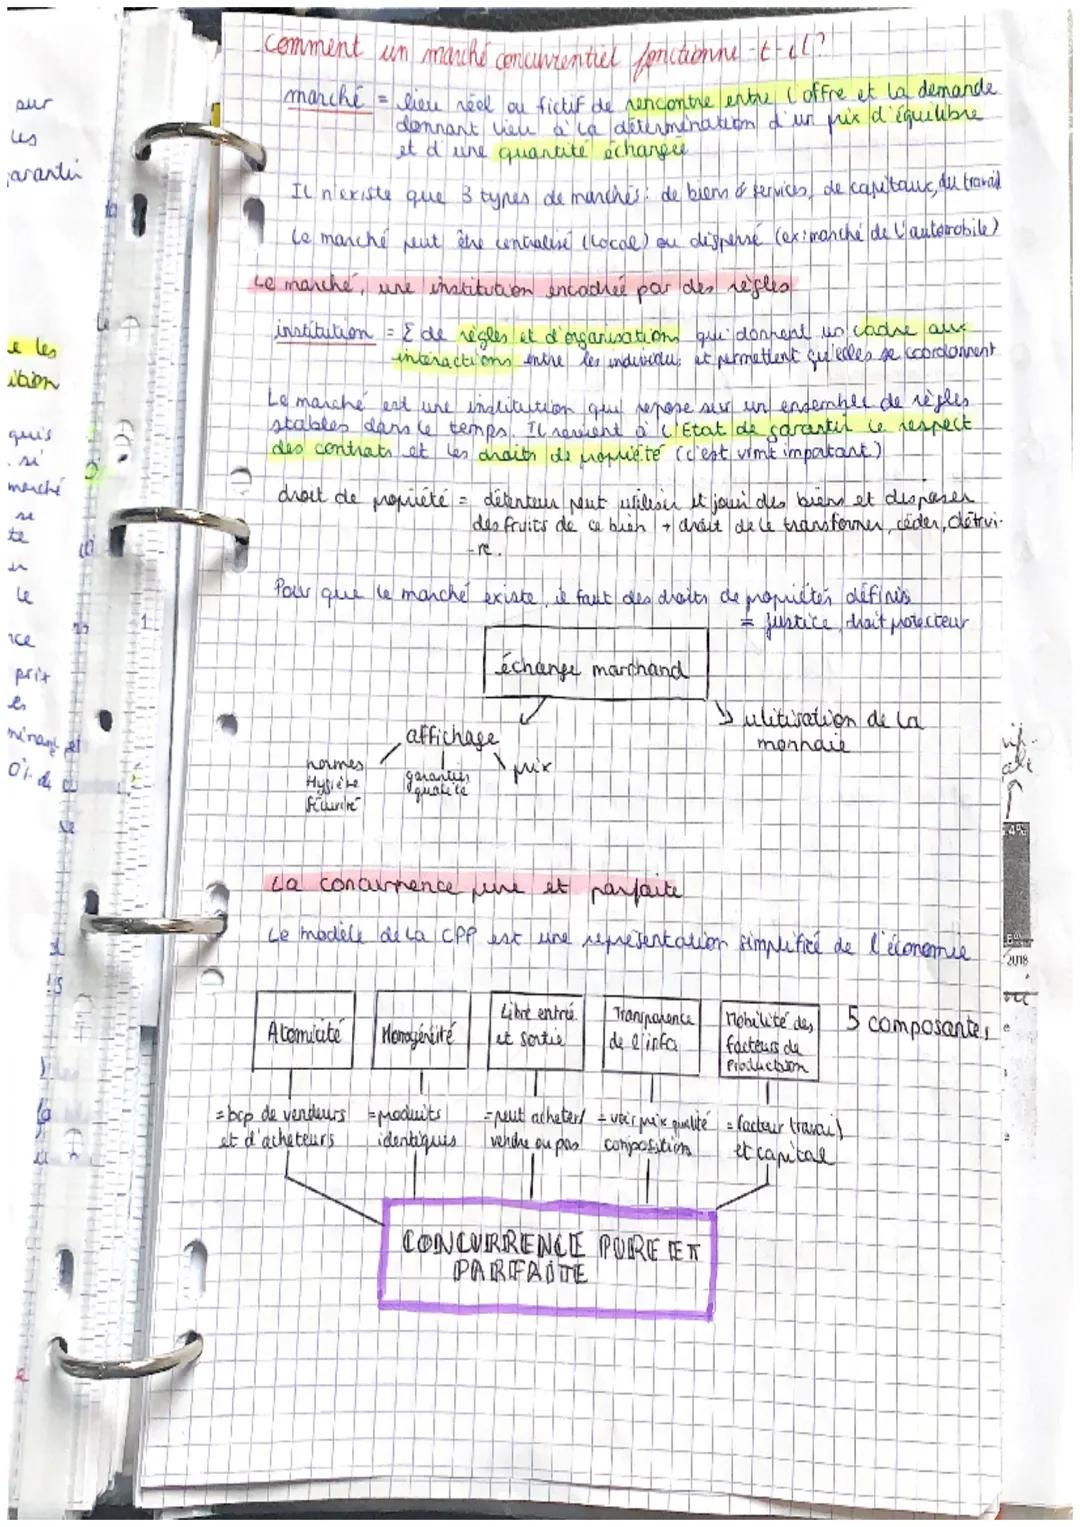 Comment un marché concurrentiel fonctionne-t-il?
marché = lieu réel ou fictif de rencontre entre l'offre et la demande
donnant lieu à la détermination d'un prix d'équilibre
et d'une quantité échangée
Il n'existe que 3 types de marchés: de biens & services, de capitaux, du travail
Le marché peut être centralisé (local) ou dispersé (ex: marché de l'automobile)
Le marché, une institution encadrée par des règles
institution = Σ de règles et d'organisations qui donnent un cadre aux
interactions entre les individus et permettent qu'elles se coordonnent
Le marché est une institution qui repose sur un ensemble de règles
stables dans le temps. Il revient à l'Etat de garantir le respect
des contrats et les droits de propriété (c'est vrmt important)
droit de propriété = détenteur peut utiliser et jouir des biens et disposer
des fruits de ce bien + droit de le transformer, céder, détrui-
-re.
Pour que le marché existe, il faut des droits de propriétés définis
= justice, droit protecteur
échange marchand
affichage
ulitisation de la
monnaie
normes
Hygiène
Sécurité
garanties
qualité
prix
La concurrence pure et parfaite
Le modèle de la CPP est une représentation simplifié de l'économie
Atomicité
Homogénéité
Libre entrée
et sortie
Transparence
de l'info
Mobilité des
facteurs de
Production
5 composantes
= bcp de vendeurs
et d'acheteurs
= produits
identiques
= peut acheter/
vendre ou pas
= voir prix qualité
composition
= facteur travail
et capital
CONCURRENCE PURE ET
PARFAITE
sur
les
garantir
e les
ition
quis
si
marché
se
te
le
prix
es
0% de
4%
2018